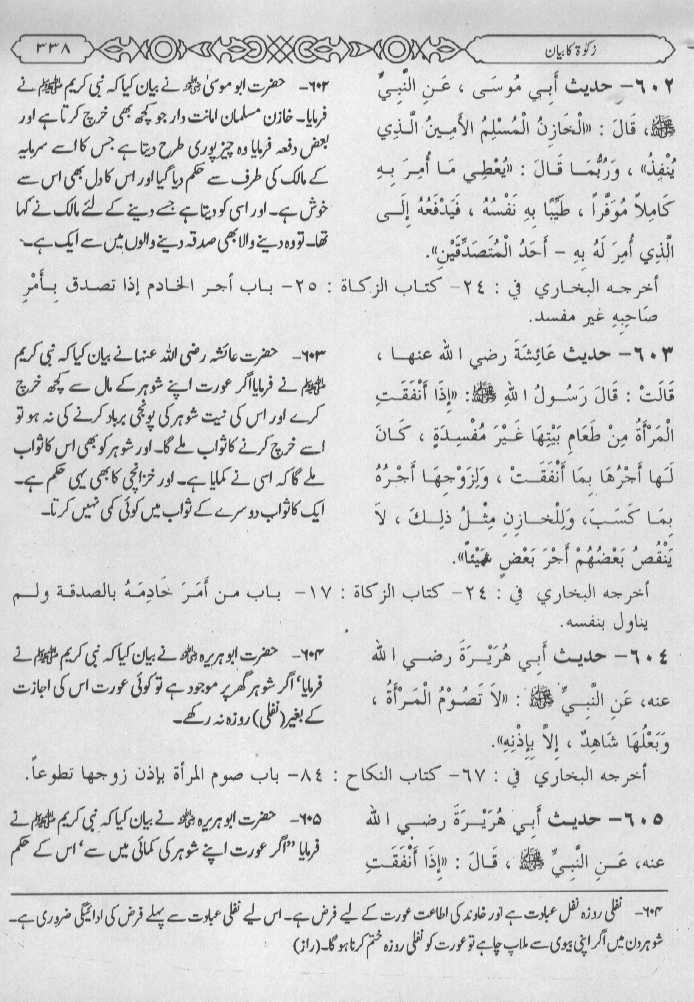 زکوٰۃ کا بیان
۳۳۸
٦٠٢- حديث أَبِي مُوسَى ، عَنِ النَّبِيِّ
ﷺ، قَالَ : «الْخَازِنُ الْمُسْلِمُ الأَمِينُ الَّذِي
يُنْفِذُ» ، وَرُبَّمَا قَالَ : «يُعْطِي مَا أُمِرَ بِهِ
كَامِلاً مُوَفَّرًا ، طَيِّبًا بِهِ نَفْسُهُ ، فَيَدْفَعُهُ إِلَى
الَّذِي أُمِرَ لَهُ بِهِ – أَحَدُ الْمُتَصَدِّقَيْنِ».
۶۰۲- حضرت ابو موسیٰ ؓ نے بیان کیا کہ نبی کریم ﷺ نے
فرمایا۔ خازن مسلمان امانت دار جو کچھ بھی خرچ کرتا ہے اور
بعض دفعہ فرمایا وہ چیز پوری طرح دیتا ہے جس کا اسے سرمایہ
کے مالک کی طرف سے حکم دیا گیا اور اس کا دل بھی اس سے
خوش ہے۔ اور اسی کو دیتا ہے جسے دینے کے لئے مالک نے کہا
تھا۔ تو وہ دینے والا بھی صدقہ دینے والوں میں سے ایک ہے۔
أخرجه البخاري في : ٢٤- كتاب الزكاة : ٢٥- باب أجر الخادم إذا تصدق بأَمْرِ
صَاحِبِهِ غير مفسد.
٦٠٣- حديث عَائِشَةَ رضي الله عنها ،
قَالَتْ : قَالَ رَسُولُ اللهِ ﷺ: «إِذَا أَنْفَقَتِ
الْمَرْأَةُ مِنْ طَعَامِ بَيْتِهَا غَيْرَ مُفْسِدَةٍ ، كَانَ
لَهَا أَجْرُهَا بِمَا أَنْفَقَتْ ، وَلِزَوْجِهَا أَجْرُهُ
بِمَا كَسَبَ، وَلِلْخَازِنِ مِثْلُ ذلِكَ ، لاَ
يَنْقُصُ بَعْضُهُمْ أَجْرَ بَعْضٍ شَيْئاً».
۶۰۳- حضرت عائشہ رضی اللہ عنہا نے بیان کیا کہ نبی کریم
ﷺ نے فرمایا اگر عورت اپنے شوہر کے مال سے کچھ خرچ
کرے اور اس کی نیت شوہر کی پونجی برباد کرنے کی نہ ہو تو
اسے خرچ کرنے کا ثواب ملے گا۔ اور شوہر کو بھی اس کا ثواب
ملے گا کہ اسی نے کمایا ہے۔ اور خزانچی کا بھی یہی حکم ہے۔
ایک کا ثواب دوسرے کے ثواب میں کوئی کمی نہیں کرتا۔
أخرجه البخاري في : ٢٤- كتاب الزكاة : ١٧- باب من أَمَرَ خَادِمَهُ بالصدقة ولم
يناول بنفسه.
٦٠٤- حديث أَبِي هُرَيْرَةَ رضي الله
عنه، عَنِ النَّبِيِّ ﷺ : «لاَ تَصُوْمُ الْمَرْأَةُ ،
وَبَعْلُهَا شَاهِدٌ ، إِلاَّ بِإِذْنِهِ».
۶۰۴- حضرت ابو ہریرہ ؓ نے بیان کیا کہ نبی کریم ﷺ نے
فرمایا‘ اگر شوہر گھر پر موجود ہے تو کوئی عورت اس کی اجازت
کے بغیر (نفلی) روزہ نہ رکھے۔
أخرجه البخاري في : ٦٧- كتاب النكاح : ٨٤- باب صوم المرأة بإذن زوجها تطوعاً.
٦٠٥- حديث أَبِي هُرَيْرَةَ رضي الله
عنه، عَنِ النَّبِيِّ ﷺ ، قَالَ : «إِذَا أَنْفَقَتِ
۶۰۵- حضرت ابو ہریرہ ؓ نے بیان کیا کہ نبی کریم ﷺ نے
فرمایا ”اگر عورت اپنے شوہر کی کمائی میں سے‘ اس کے حکم
۶۰۴- نفلی روزہ نفل عبادت ہے اور خاوند کی اطاعت عورت کے لیے فرض ہے۔ اس لیے نفلی عبادت سے پہلے فرض کی ادائیگی ضروری ہے۔
شوہر دن میں اگر اپنی بیوی سے ملاپ چاہے تو عورت کو نفلی روزہ ختم کرنا ہو گا۔ (راز)